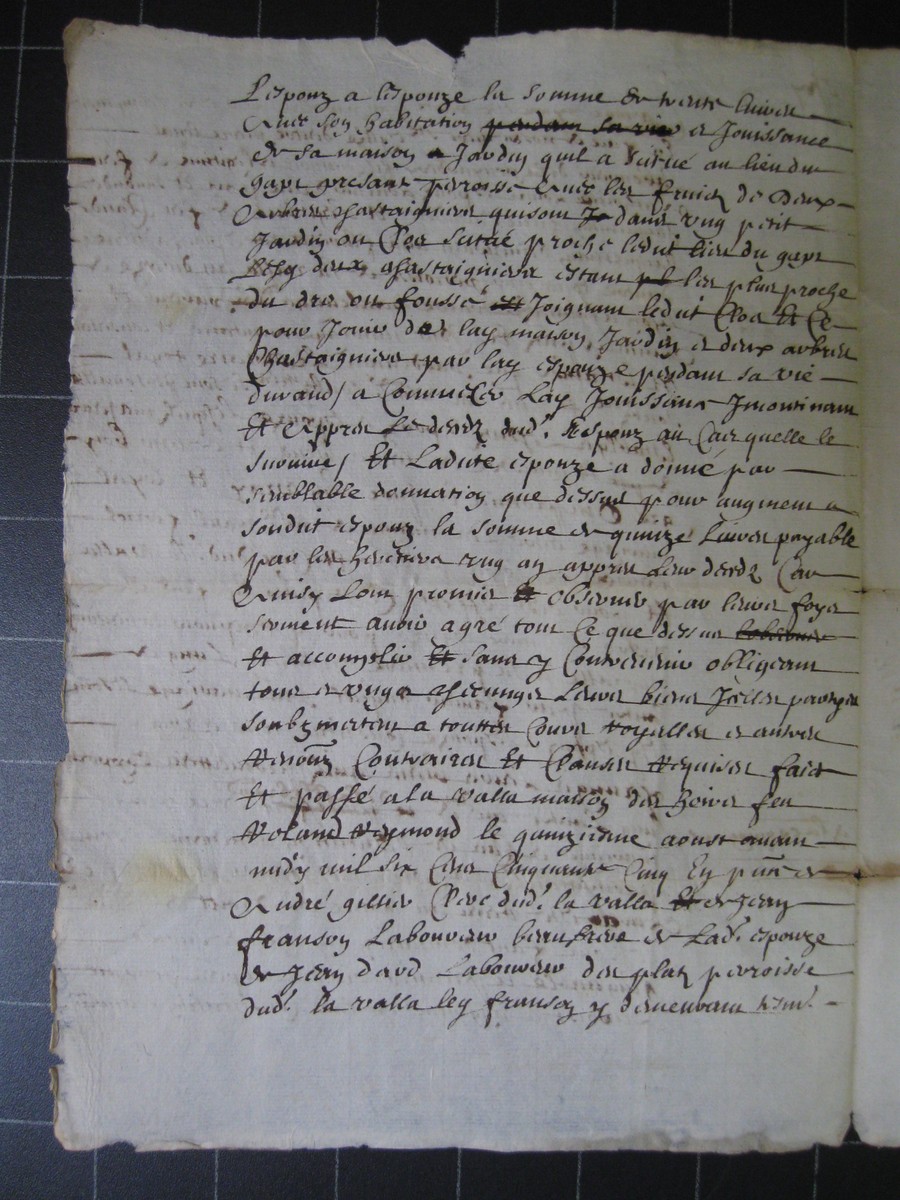 Lespouz a lespouze la somme de trente livres
Avec son habitation pandant sa vie et Jouissance
de sa maison et Jardin quil a scitué au lieu du
gapt presant parroisse Avec les fruictz de Deux
Arbres chastaigniers qui sont dans ung petit
Jardin ou Clos scitué proche ledit lieu du gapt
lesd deux chastaigniers estant les plus proche
du dit ou foussé Joignant ledit Clos Et Ce
pour Jouir de lad maison Jardin et deux arbres
Chastaigniers par lad espouze pendant sa vie
durand, a Commencer Lad Jouissance Incontinant
Et Appres Le deces dud. Respouz au Cas quelle le
survive, Et Ladite espouze a donné par
semblable donnation que dessus pour augment a
sondit espouz la somme de quinze Livres payable
par les heretiers ung an appres Leur deces Car
Ainsy Lont promis Et observer par leurs foys
serment avoir agré tout Ce que dessus
Et accomplir Et sans y Contrevenir obligeant
tous et ungz chescungz Leurs biens
soubzmettent a touttes Cours Royalles et autres
Renonz Contraires Et Clauses Requises faict
Et passé a la valla maison des hoirs feu
Roland Reymond le quinziesme aoust avant
midy mil six Cens Cinquante Cinq En pnce de
André gillier Clerc dud. la valla Et de Jean
franson Laboureur beaufrere de Lad. espouze
de Jean dard Laboureur des plas parroisse
dud. la valla led franson y demeurant